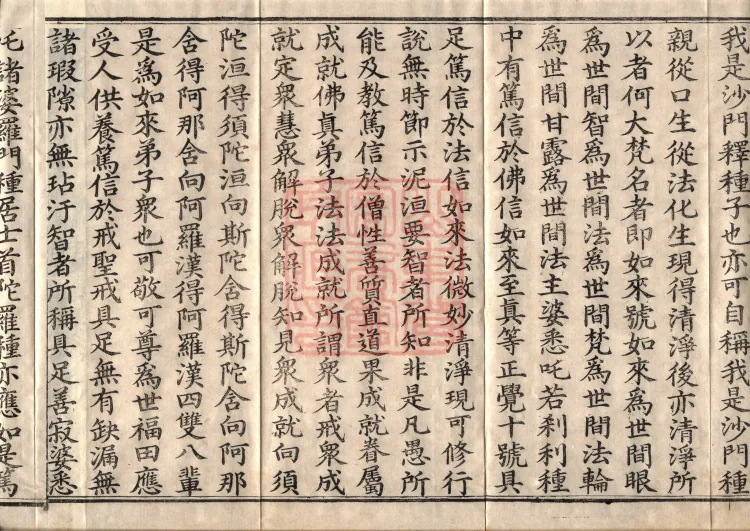 我是沙門釋種子也亦可自稱我是沙門種
親從口生從法化生現得清淨後亦清淨所
以者何大梵名者即如來號如來為世間眼
為世間智為世間法為世間梵為世間法輪
為世間甘露為世間法主婆悉吒若剎利種
中有篤信於佛信如來至真等正覺十號具
足篤信於法信如來法微妙清淨現可修行
說無時節示泥洹要智者所知非是凡愚所
能及教篤信於僧性善質直道果成就眷屬
成就佛真弟子法法成就所謂眾者戒眾成
就定眾慧眾解脫眾解脫知見眾成就向須
陀洹得須陀洹向斯陀含得斯陀含向阿那
含得阿那含向阿羅漢得阿羅漢四雙八輩
是為如來弟子眾也可敬可尊為世福田應
受人供養篤信於戒聖戒具足無有缺漏無
諸瑕隙亦無玷汙智者所稱具足善寂婆悉
吒諸婆羅門種居士首陀羅種亦應如是篤